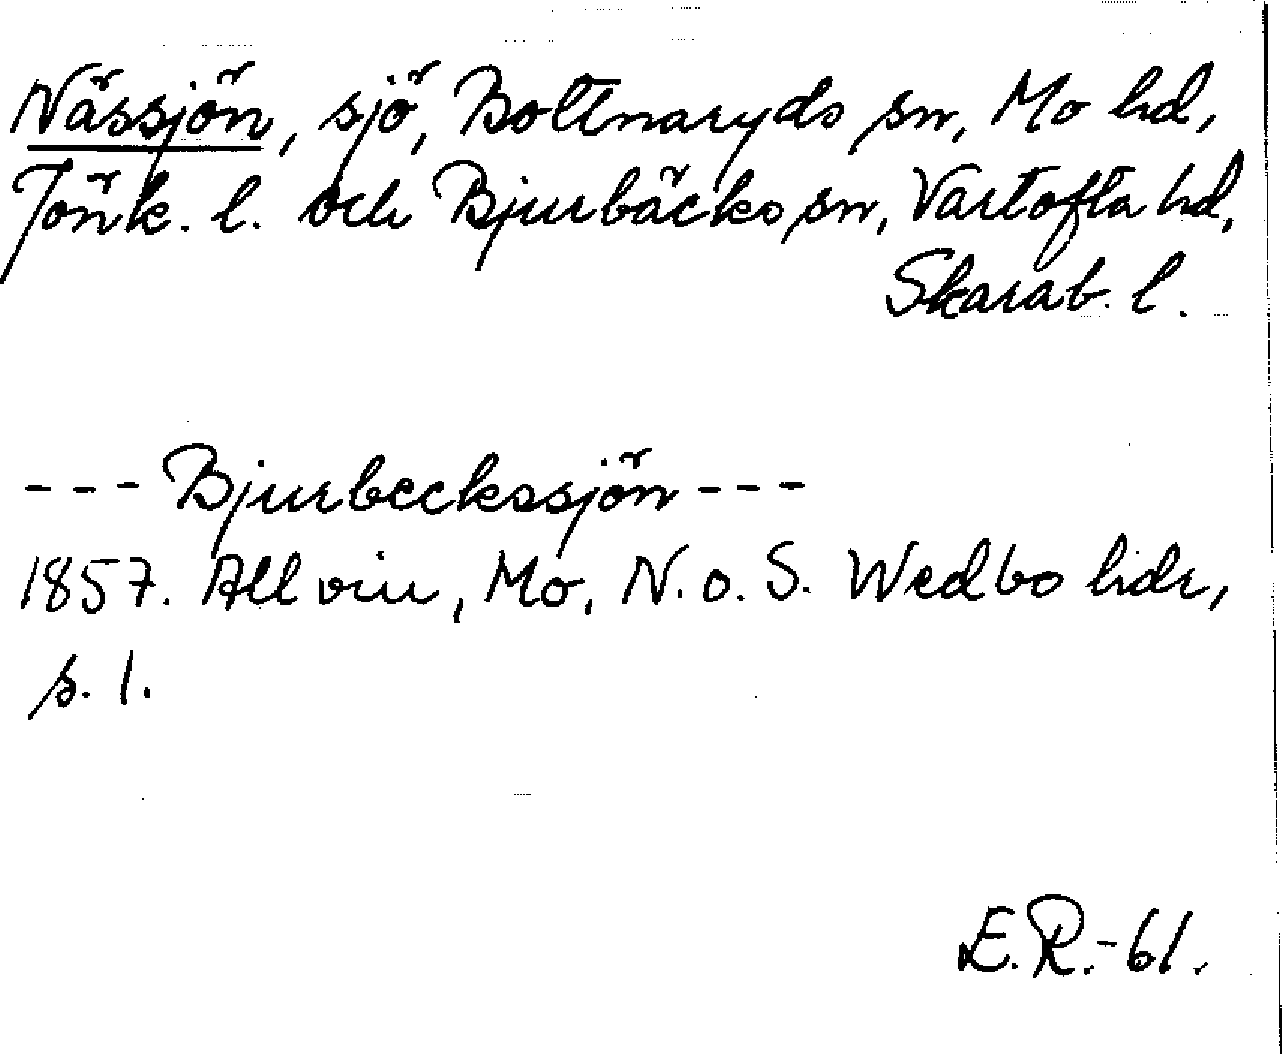 Nässjön, sjö, Bottnaryds sn, Mo hd,
Jönk. l. och Bjurbäcks sn, Vartofta hd,
Skarab. l.
--- Bjurbeckssjön ---
1857. Allvin, Mo, N. o. S. Wedbo hdr,
s. 1.
E.R.-61.